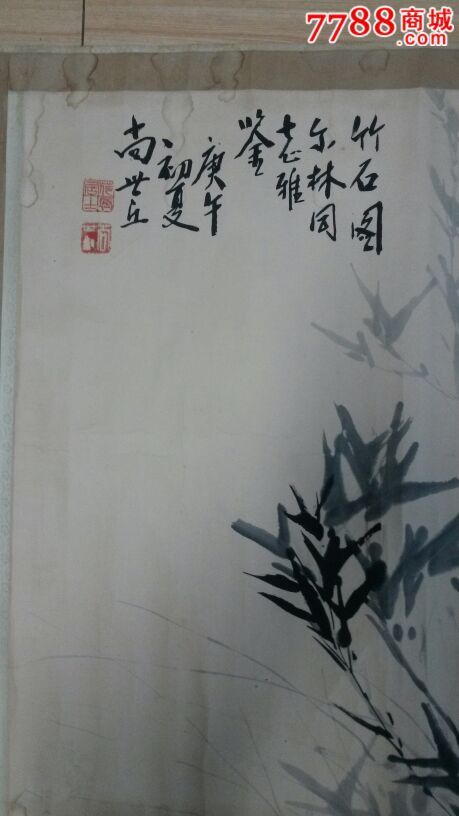 7788商城
竹石图
尔林同
志雅
鉴
庚午
初夏
尚世立